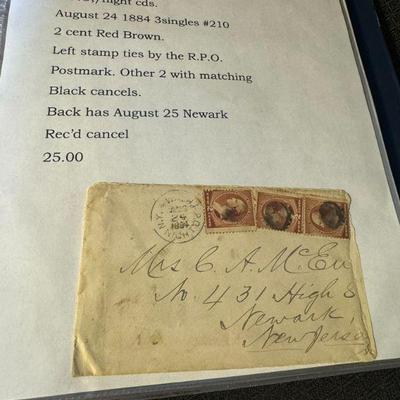 /night cds.
August 24 1884 3singles #210
2 cent Red Brown.
Left stamp ties by the R.P.O.
Postmark. Other 2 with matching
Black cancels.
Back has August 25 Newark
Rec'd cancel
25.00
N.Y.
R.P.O.
1884
Mrs C. A. McEu
No. 431 High S
Newark
New Jersey